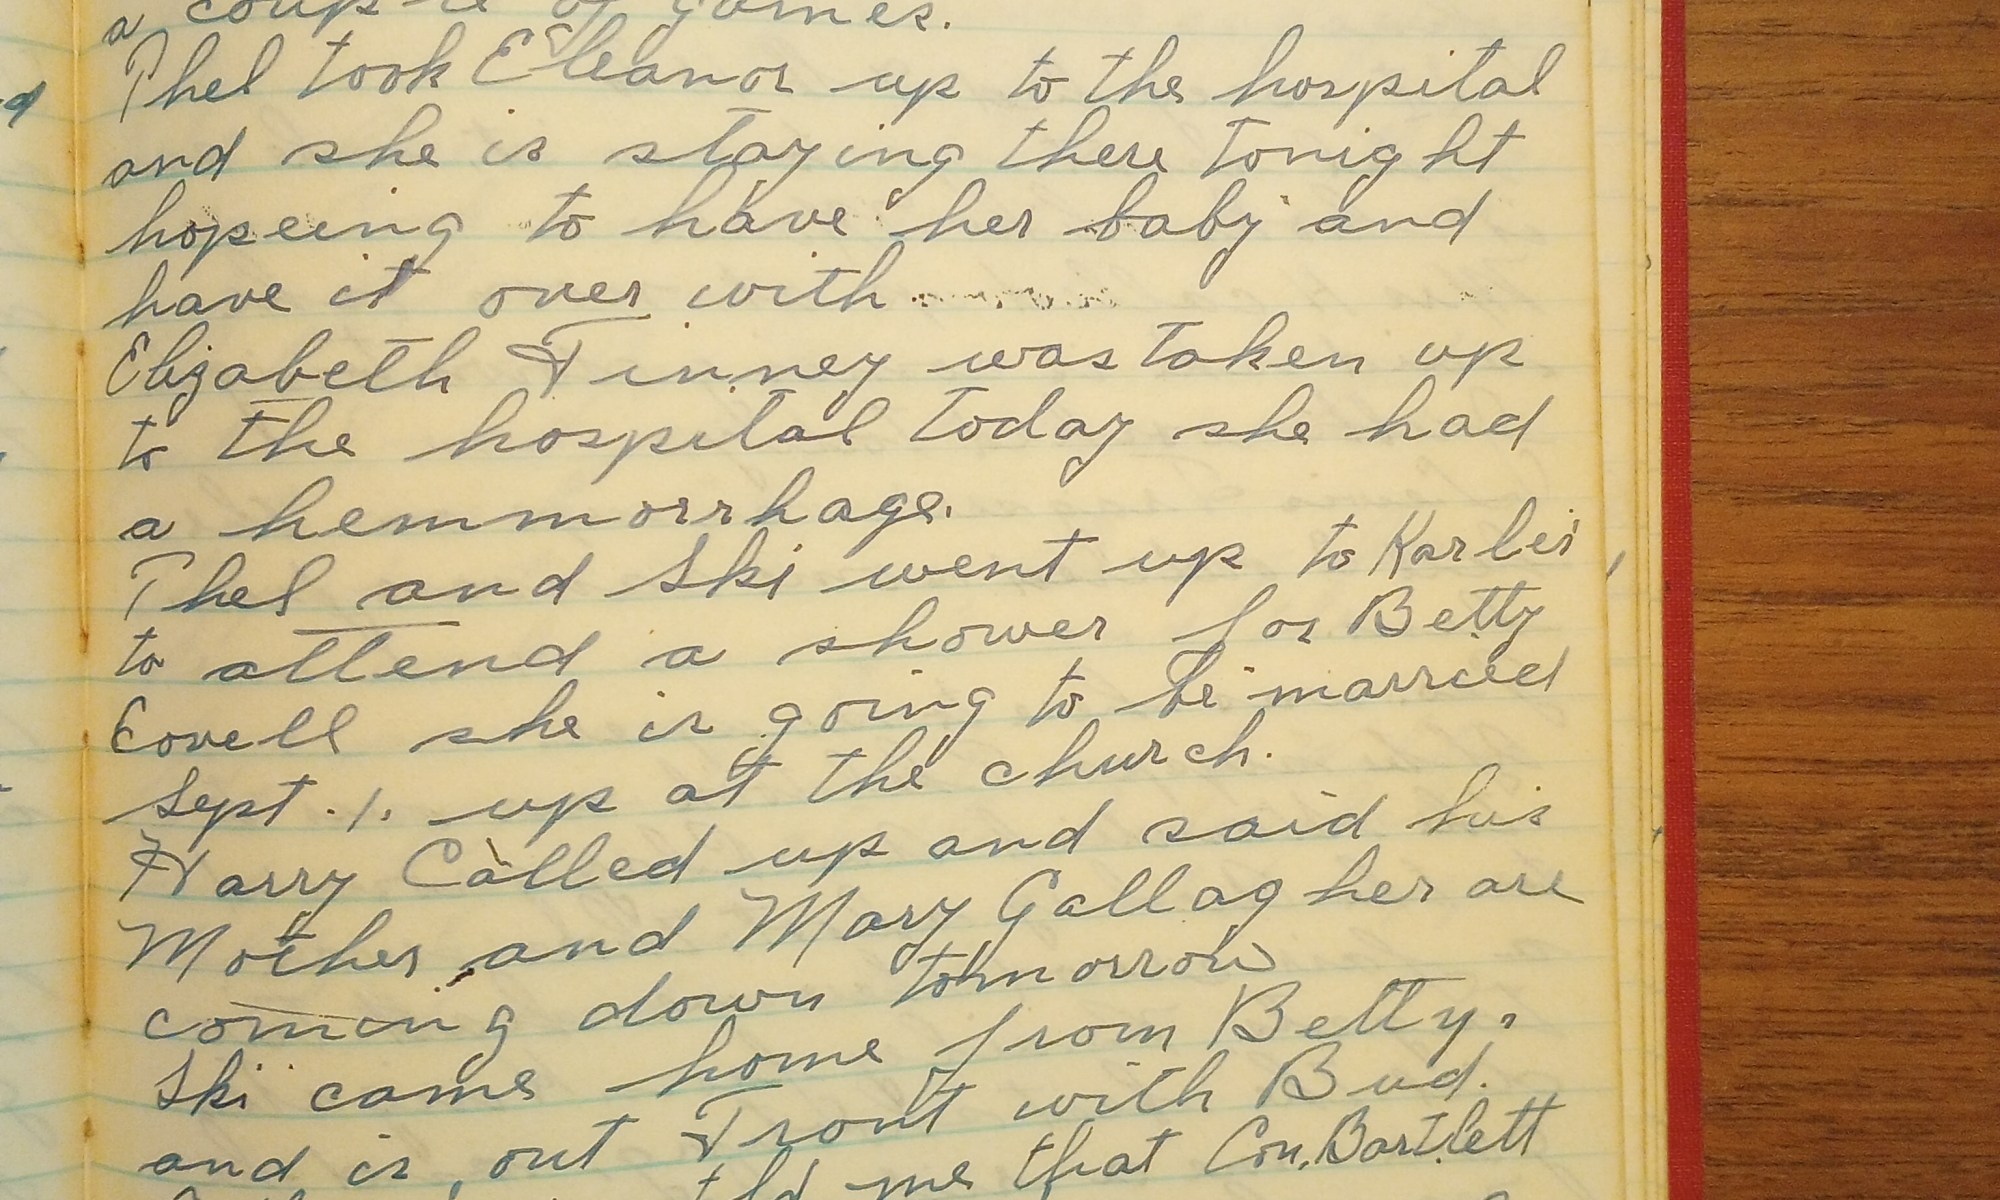 a couple of games.
Thel took Eleanor up to the hospital
and she is staying there tonight
hopeing to have her baby and
have it over with
Elizabeth Finney was taken up
to the hospital today she had
a hemmorrhage.
Thel and Ski went up to Karlis'
to attend a shower for Betty
Covell she is going to be married
Sept. 1. up at the church.
Harry Called up and said his
Mother and Mary Gallagher are
coming down tomorrow
Ski came home from Betty's
and is out Front with Bud.
told me that Con. Bartlett